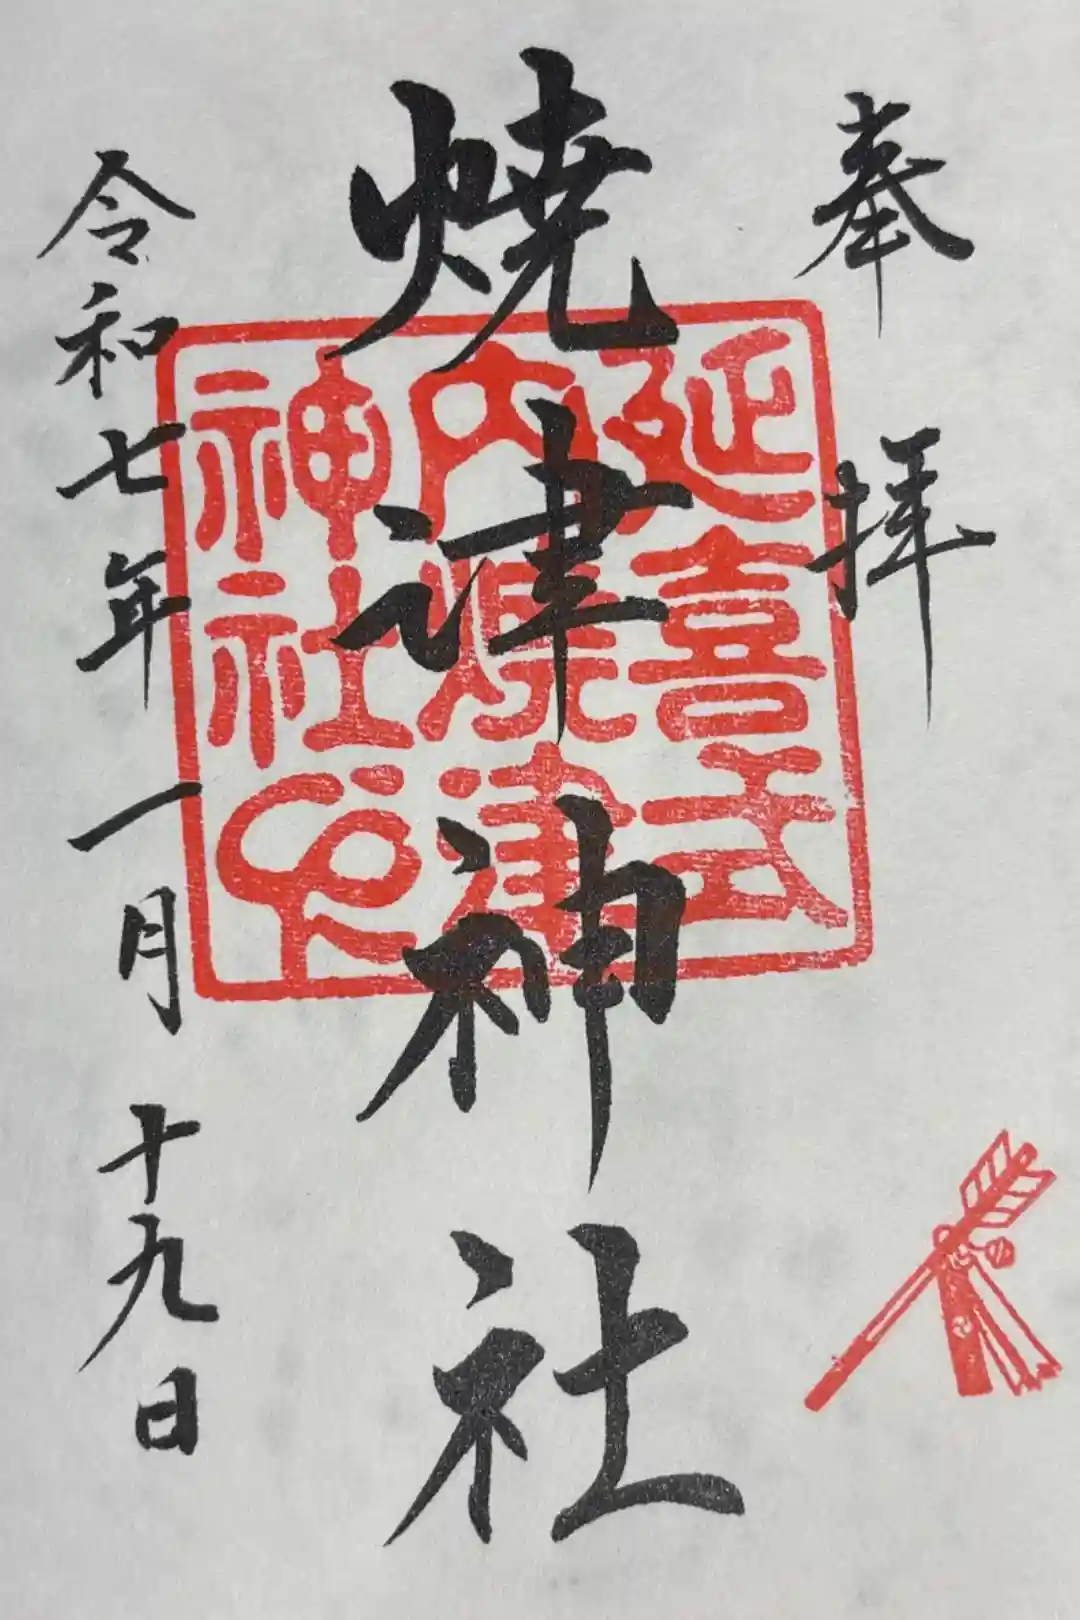 奉拝
焼津神社
延喜式
内焼津
神社印
令和七年一月十九日